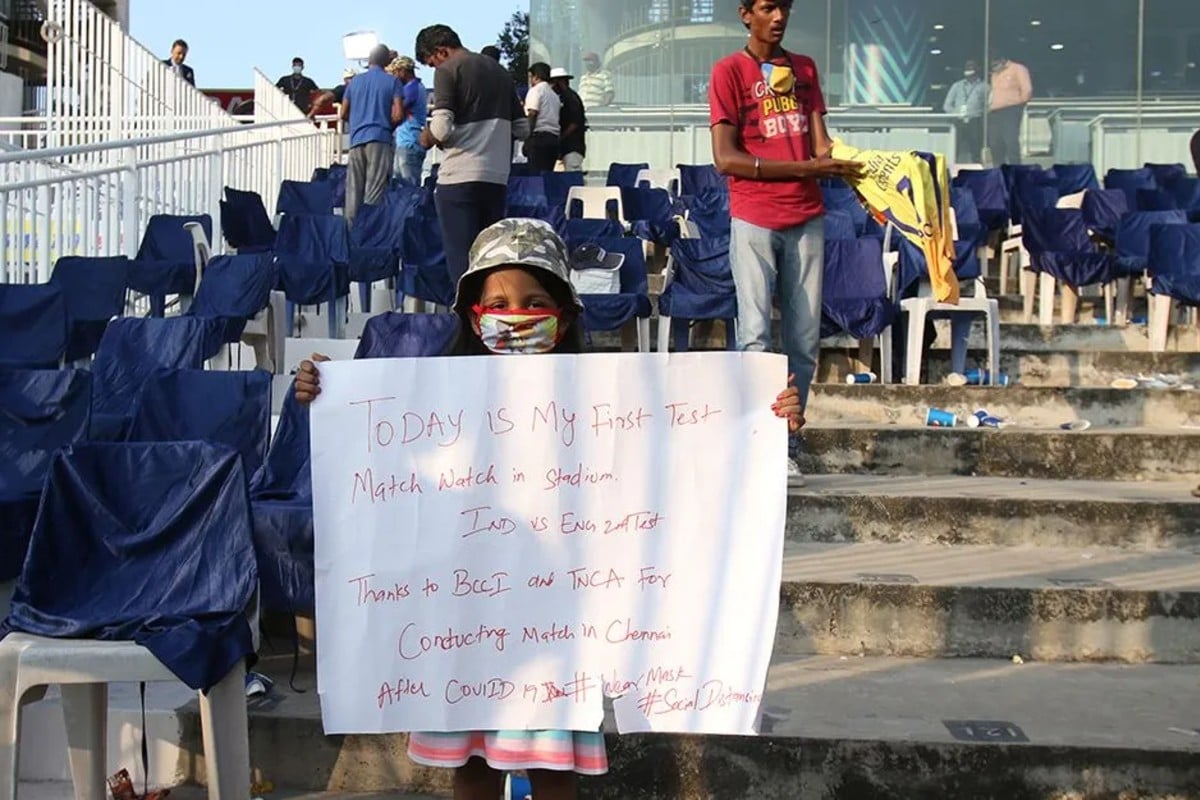 CRAZY
PUBG
BOYZ
TODAY is My First Test
Match Watch in Stadium.
IND vs ENG 2nd Test
Thanks to BCCI and TNCA For
Conducting Match in Chennai
After COVID 19 # Wear Mask
#Social Distancing
121